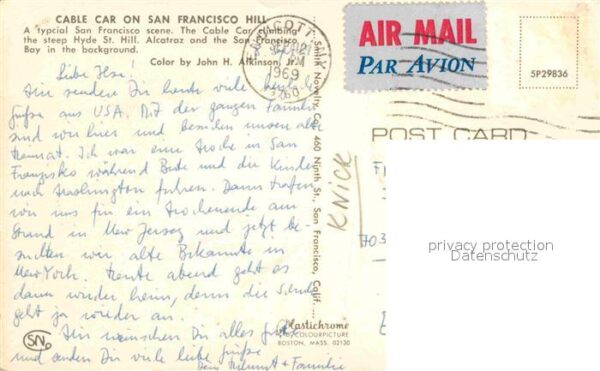 CABLE CAR ON SAN FRANCISCO HILL
A typical San Francisco scene. The Cable Car climbing
the steep Hyde St. Hill. Alcatraz and the San Francisco
Bay in the background.
Color by John H. Atkinson, Jr.
Liebe Ilse!
Wir senden Dir heute viele herzliche
Grüße aus USA. Mit der ganzen Familie
sind wir hier und besuchen unsere alte
Heimat. Ich war eine Woche in San
Franzisko während Bente und die Kinder
nach Washington fuhren. Dann trafen
wir uns für ein Wochenende am
Strand in New Jersey und jetzt be-
suchten wir alte Bekannte in
New York. Heute abend geht es
dann wieder heim, denn die Schule
geht ja wieder an.
Wir wünschen Dir alles gute
und senden Dir viele liebe Grüße
Dein Helmut + Familie
SN
Smith Novelty Co., 460 Ninth St., San Francisco, Calif.
1969
AIR MAIL
PAR AVION
5P29836
POST CARD
KNICK
703
privacy protection
Datenschutz
Plastichrome
BY COLOURPICTURE
BOSTON, MASS. 02130